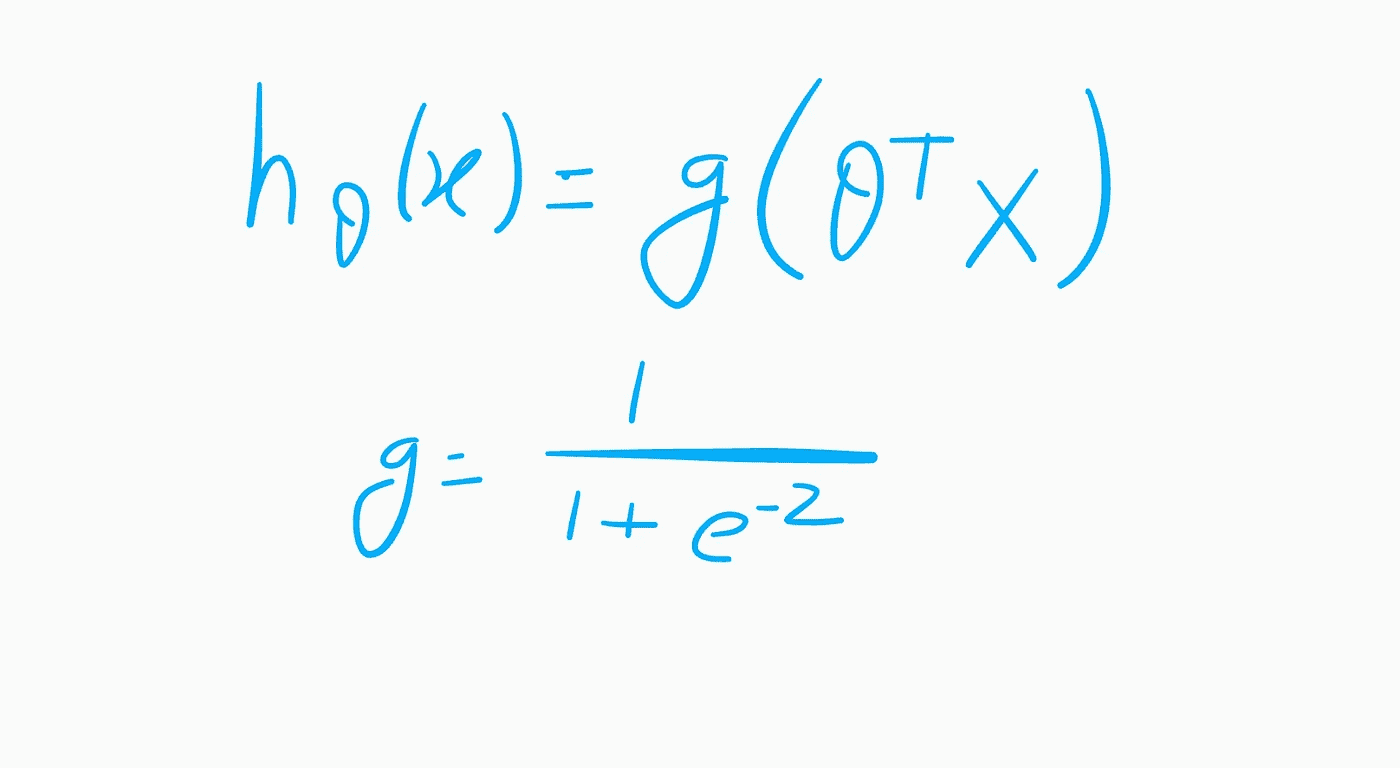 h_θ(x) = g(θ^T x)
g = 1 / (1 + e^-z)